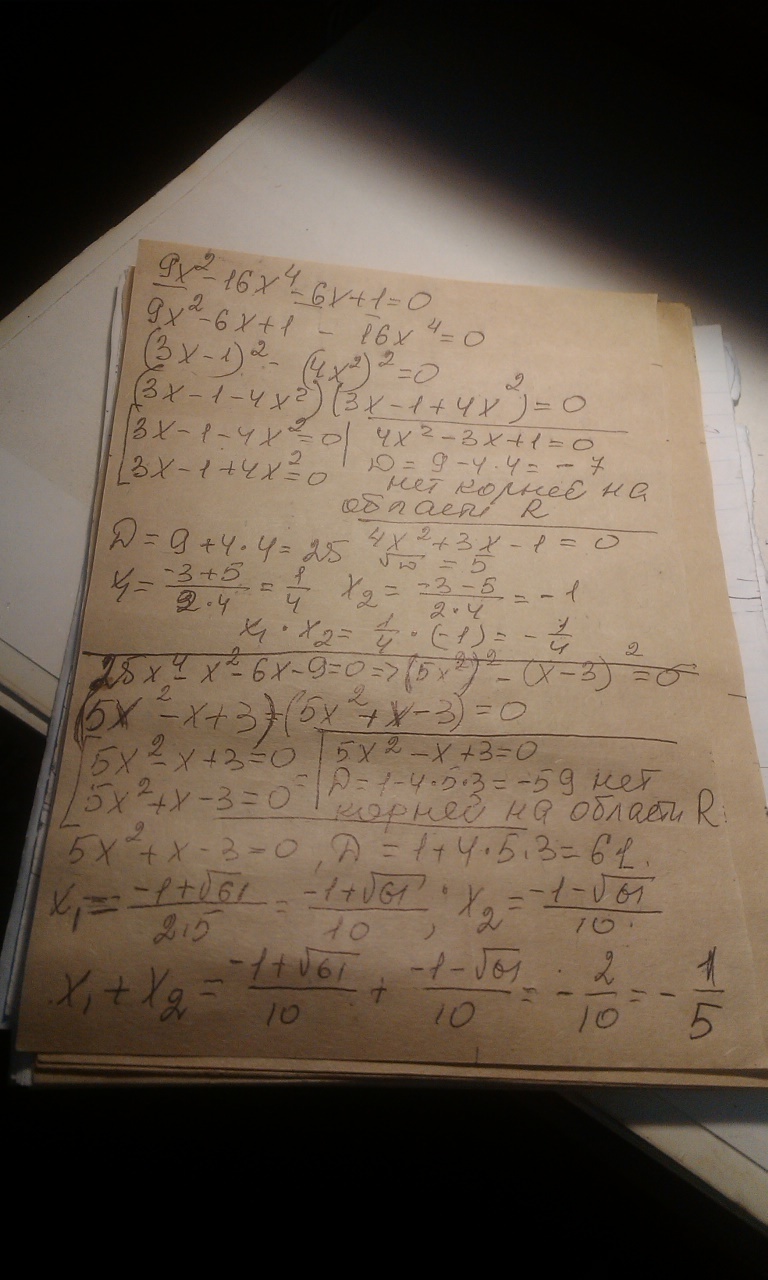 9x² - 16x⁴ - 6x + 1 = 0
9x² - 6x + 1 - 16x⁴ = 0
(3x - 1)² - (4x²)² = 0
(3x - 1 - 4x²)(3x - 1 + 4x²) = 0
[3x - 1 - 4x² = 0 | 4x² - 3x + 1 = 0
[3x - 1 + 4x² = 0 | D = 9 - 4·4 = -7
нет корней на
области R
D = 9 + 4·4 = 25 4x² + 3x - 1 = 0
√D = 5
x₁ = (-3 + 5)/(2·4) = 1/4 x₂ = (-3 - 5)/(2·4) = -1
x₁ · x₂ = 1/4 · (-1) = -1/4
25x⁴ - x² - 6x - 9 = 0 => (5x²)² - (x - 3)² = 0
(5x² - x + 3)(5x² + x - 3) = 0
[5x² - x + 3 = 0 | 5x² - x + 3 = 0
[5x² + x - 3 = 0 | D = 1 - 4·5·3 = -59 нет
корней на области R
5x² + x - 3 = 0, D = 1 + 4·5·3 = 61.
x₁ = (-1 + √61)/(2·5) = (-1 + √61)/10; x₂ = (-1 - √61)/10.
x₁ + x₂ = (-1 + √61)/10 + (-1 - √61)/10 = -2/10 = -1/5